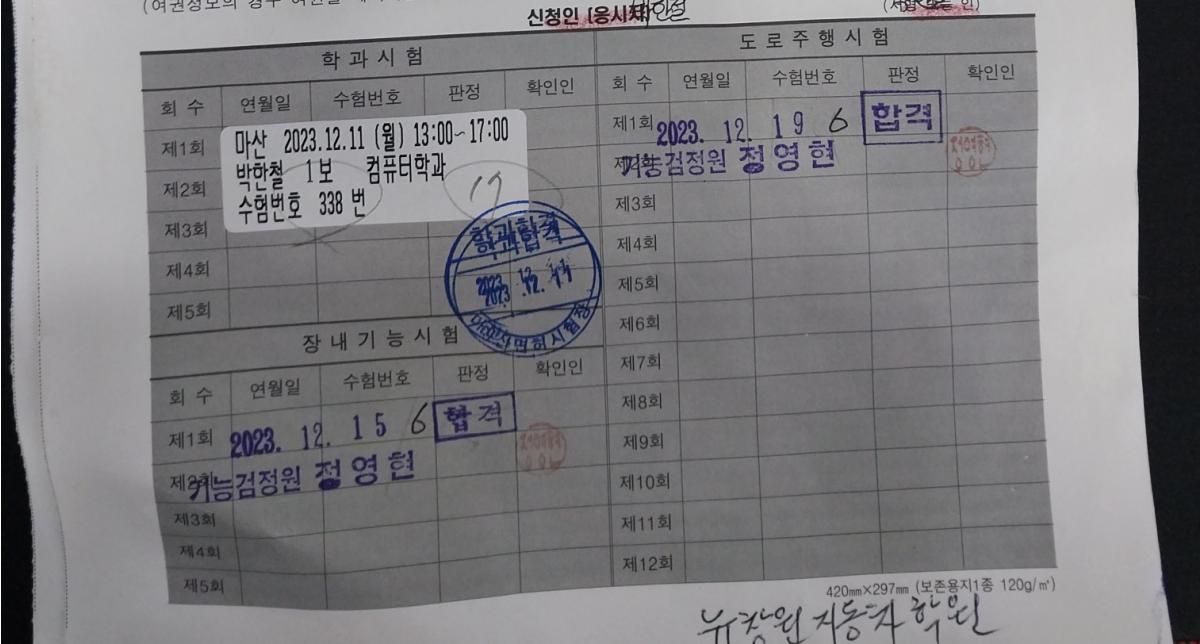 (여권정보의 경우 여권을
신청인 (응시자)
학 과 시 험
회 수 연월일 수험번호 판정 확인인
제1회
제2회
제3회
제4회
제5회
마산 2023.12.11 (월) 13:00~17:00
박한철 1보 컴퓨터학과
수험번호 338 번
17
학과합격
2023. 12. 11
장 내 기 능 시 험
회 수 연월일 수험번호 판정 확인인
제1회 2023. 12. 15 6 합격
기능검정원 정영현
제3회
제4회
제5회
도 로 주 행 시 험
회 수 연월일 수험번호 판정 확인인
제1회 2023. 12. 19 6 합격
기능검정원 정영현
제3회
제4회
제5회
제6회
제7회
제8회
제9회
제10회
제11회
제12회
420㎜×297㎜ (보존용지1종 120g/㎡)
뉴창원자동차학원